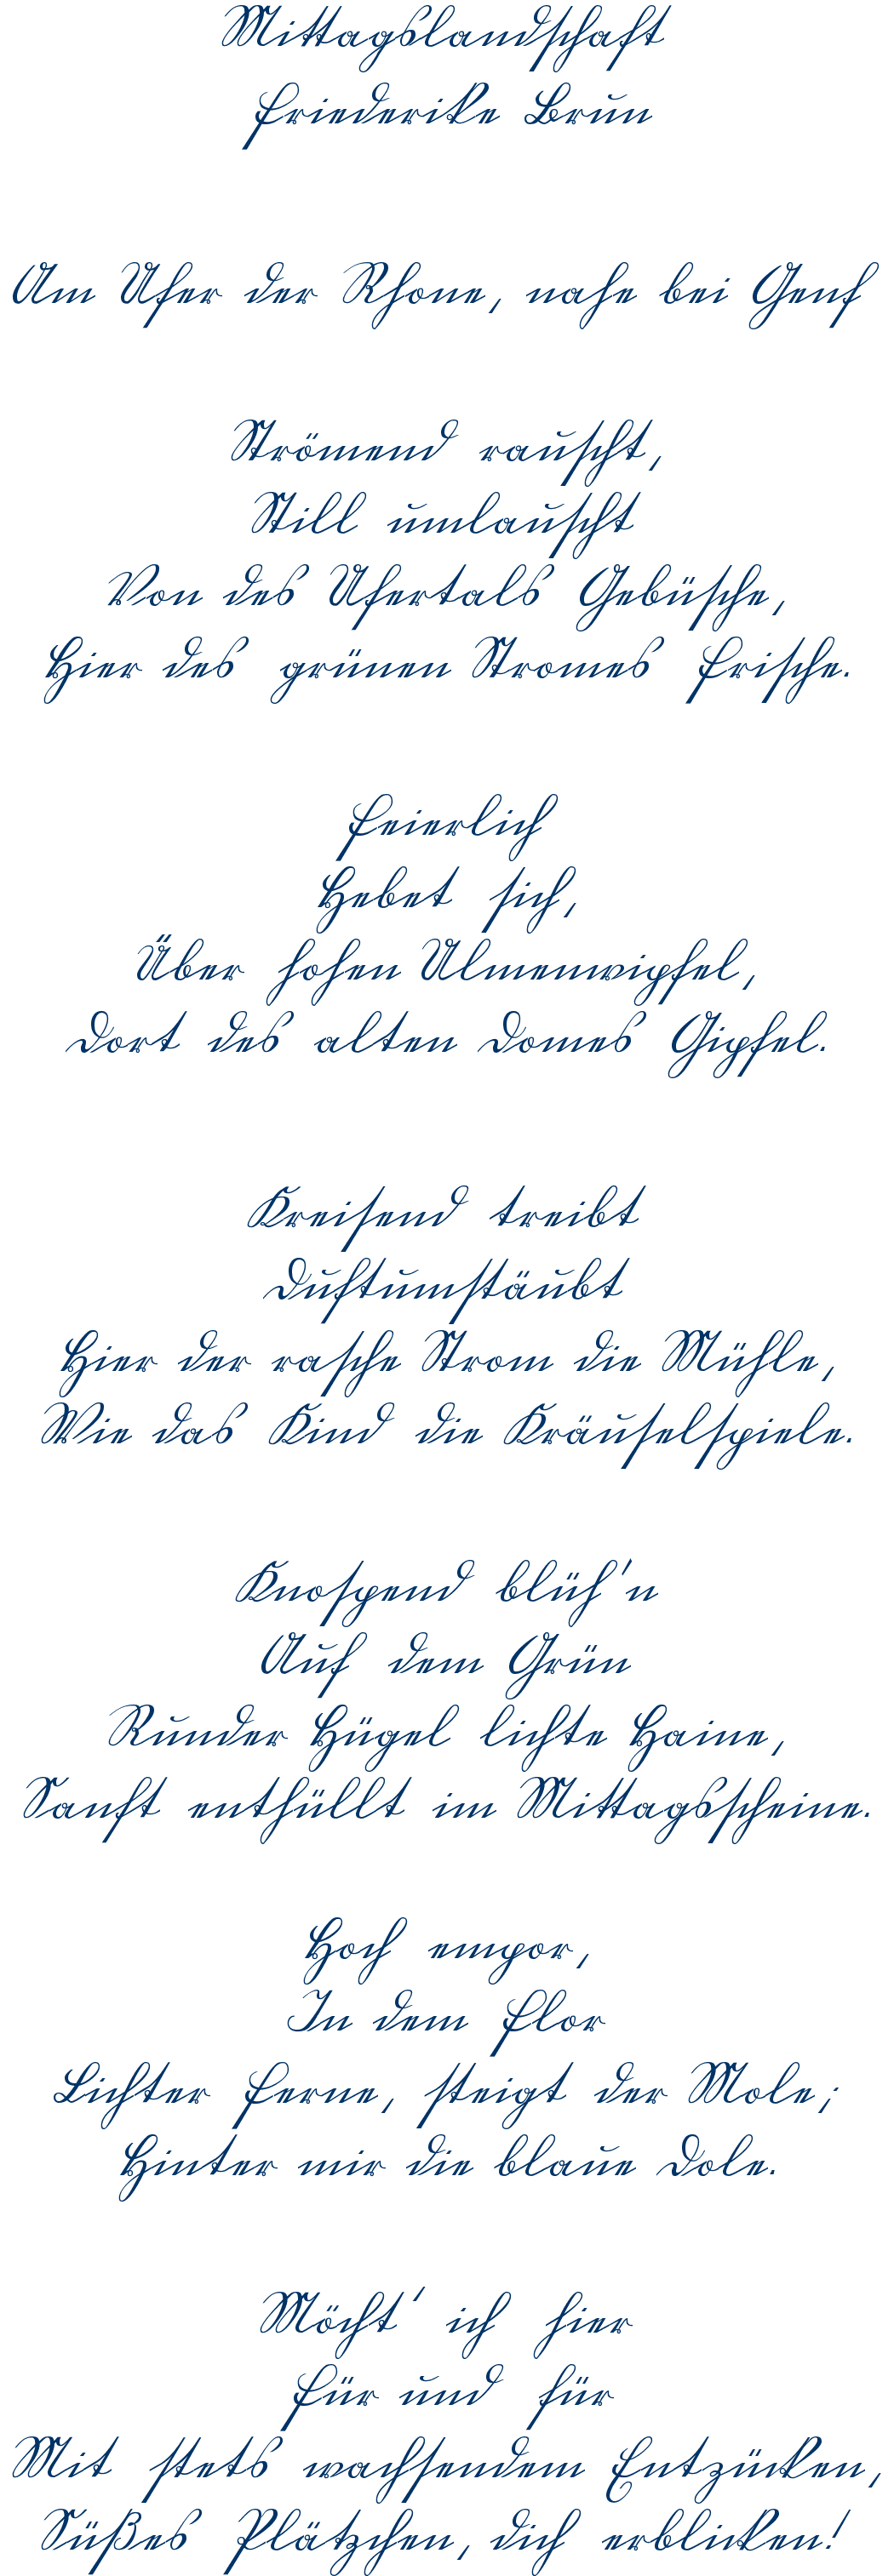 Mittagslandschaft
Friederike Brun
Am Ufer der Rhone, nahe bei Genf
Strömend rauscht,
Still umlauscht
Von des Ufertals Gebüsche,
Hier des grünen Stromes Frische.
Feierlich
Hebet sich,
Über hohen Ulmenwipfel,
Dort des alten Domes Gipfel.
Kreisend treibt
Duftumstäubt
Hier der rasche Strom die Mühle,
Wie das Kind die Kräuselspiele.
Knospend blüh'n
Auf dem Grün
Runder Hügel lichte Haine,
Sanft enthüllt im Mittagsscheine.
Hoch empor,
In dem Flor
Lichter Ferne, steigt der Mole;
Hinter mir die blaue Dole.
Möcht' ich hier
Für und für
Mit stets wachsendem Entzücken,
Süßes Plätzchen, dich erblicken!